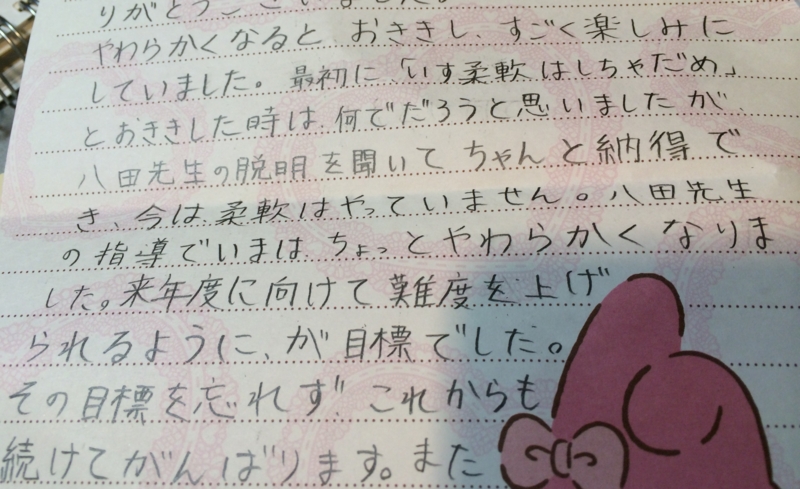 りがとうございました。
やわらかくなると おききし、すごく楽しみに
していました。最初に「いす柔軟はしちゃだめ」
とおききした時は何でだろうと思いましたが
八田先生の脱明を聞いてちゃんと納得で
き、今は柔軟はやっていません。八田先生
の指導でいまは ちょっとやわらかくなりま
した。来年度に向けて難度を上げ
られるように、が目標でした。
その目標を忘れず これからも
続けてがんばります。また